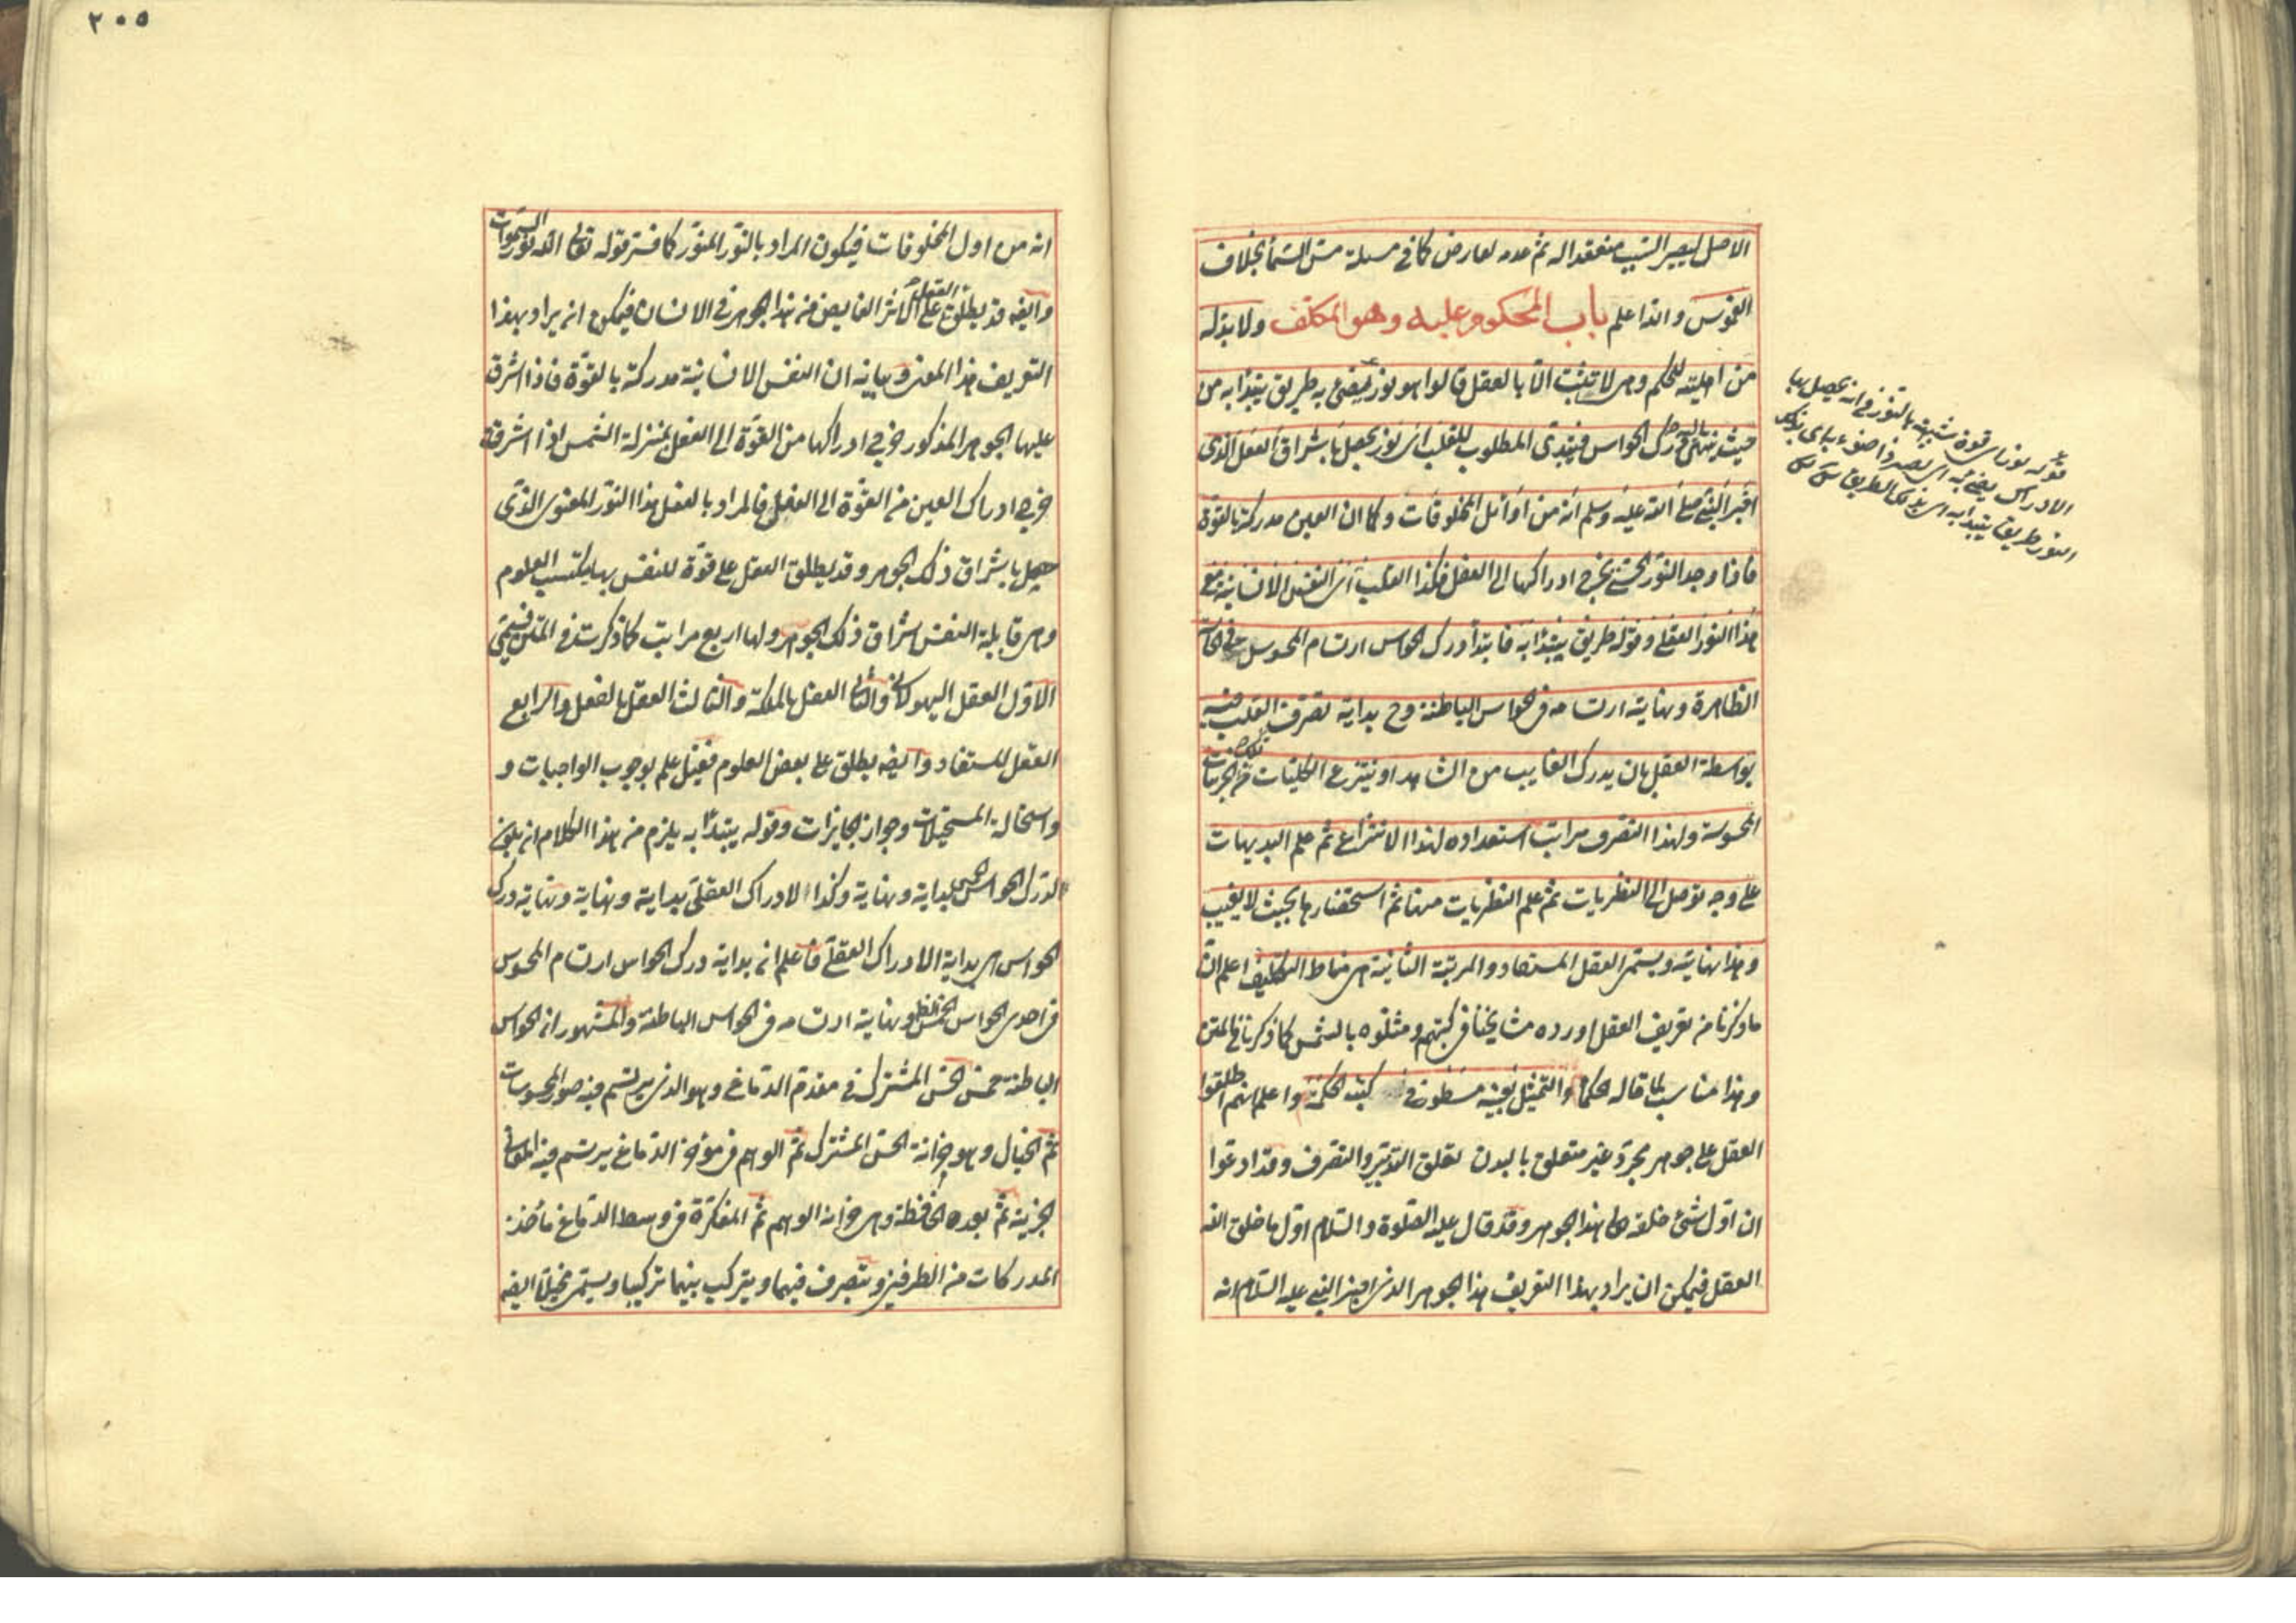 الاصل ليصير السبب منعقدا له ثم عدمه لعارض كما في مسئلة مس السماء بخلاف
الغموس والله اعلم باب المحكوم عليه وهو المكلف ولا بد له
من اهليته للحكم وهي لا تثبت الا بالعقل قالوا هو نور يضئ به طريق يبتدأ به من
حيث ينتهى اليه درك الحواس فيبتدى المطلوب للقلب اى نور يحصل باشراق العقل الذى
اخبر النبى صلى الله عليه وسلم انه من اوائل المخلوقات وكما ان العين مدركة بالقوة
فاذا وجد النور الحسى يخرج ادراكها الى الفعل فكذا القلب اى النفس الانسانية مع
هذا النور العقلى وقوله طريق يبتدأ به فابتدا درك الحواس ارتسام المحسوس فى الحاسة
الظاهرة ونهايته ارتسامه فى الحواس الباطنة وح بداية تصرف القلب فيه
بواسطة العقل بان يدرك الغايب من الشاهد او ينتزع الكليات من تلك الجزئيات
المحسوسة ولهذا التصرف مراتب استعداده لهذا الانتزاع ثم علم البديهيات
على وجه يوصل الى النظريات ثم علم النظريات منها ثم استحضارها بحيث لا يغيب
وهذا نهايته ويسمى العقل المستفاد والمرتبة الثانية هى مناط التكليف اعلم ان
ما ذكرنا من تعريف العقل اورده مشايخنا فى كتبهم ومثلوه بالشمس كما ذكرنا فى المتن
وهذا مناسب لما قاله الحكماء والتمثيل بعينه مسطور فى كتب الحكمة واعلم انهم اطلقوا
العقل على جوهر مجرد غير متعلق بالبدن تعلق التدبير والتصرف وقد ادعوا
ان اول شئ خلقه الله هذا الجوهر وقد قال عليه الصلوة والسلام اول ما خلق الله
العقل فيمكن ان يراد بهذا التعريف هذا الجوهر الذى اخبر النبى عليه السلام انه
قوله نور اى قوة شبيهة بالنور فى انه يحصل بها
الادراك يضئ به اى يصير ذا ضوء باى بذلك
النور طريق يبتدأ به اى بذلك الطريق
٢٠٥
انه من اول المخلوقات فيكون المراد بالنور المنور كما فسر قوله تعالى الله نور السموات
وايضا قد يطلق العقل على الاثر الفايض من هذا الجوهر فى الانسان فيمكن ان يراد بهذا
التعريف هذا المعنى وبيانه ان النفس الانسانية مدركة بالقوة فاذا اشرق
عليها الجوهر المذكور خرج ادراكها من القوة الى الفعل بمنزلة الشمس اذا اشرقت
خرج ادراك العين من القوة الى الفعل فالمراد بالعقل هذا النور المعنوى الذى
حصل باشراق ذلك الجوهر وقد يطلق العقل على قوة للنفس بها يكتسب العلوم
وهى قابلة النفس اشراق ذلك الجوهر ولها اربع مراتب كما ذكرت فى المتن فيسمى
الاول العقل الهيولانى والثانى العقل بالملكة والثالث العقل بالفعل والرابع
العقل المستفاد وايضا يطلق على بعض العلوم فقيل علم بوجوب الواجبات و
واستحالة المستحيلات وجواز الجايزات وقوله يبتدأ به يلزم من هذا الكلام ان يكون
لدرك الحواس الخمس بداية ونهاية وكذا الادراك العقلى بداية ونهاية ونهاية درك
الحواس هى بداية الادراك العقلى فاعلم ان بداية درك الحواس ارتسام المحسوس
فى احدى الحواس الخمس الظ ونهايته ارتسامه فى الحواس الباطنة والمشهور ان الحواس
الباطنة خمس الحس المشترك فى مقدم الدماغ وهو الذى يرتسم فيه صور المحسوسات
ثم الخيال وهو خزانة الحس المشترك ثم الوهم فى مؤخر الدماغ يرتسم فيه المعانى
الجزية ثم بعده الحافظة وهى خزانة الوهم ثم المفكرة فى وسط الدماغ ماخذ
المدركات من الطرفين ويتصرف فيهما ويتركب بينهما تركيبا ويسمى مخيلة ايضا